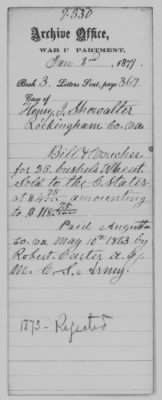 9-530
Archive Office,
WAR DEPARTMENT,
Jan 2nd, 1879
Book 3, Letters Sent, page 367
Case of
Henry J. Showalter
Rockingham Co. Va
Bill & Voucher
for 25 bushels Wheat
sold to the C. States
at $4.75 amounting
to $118.75
Paid Augusta
Co. Va May 10th 1863 by
Robert Carter A. Q.
M. C. S. Army.
1873 - Rejected